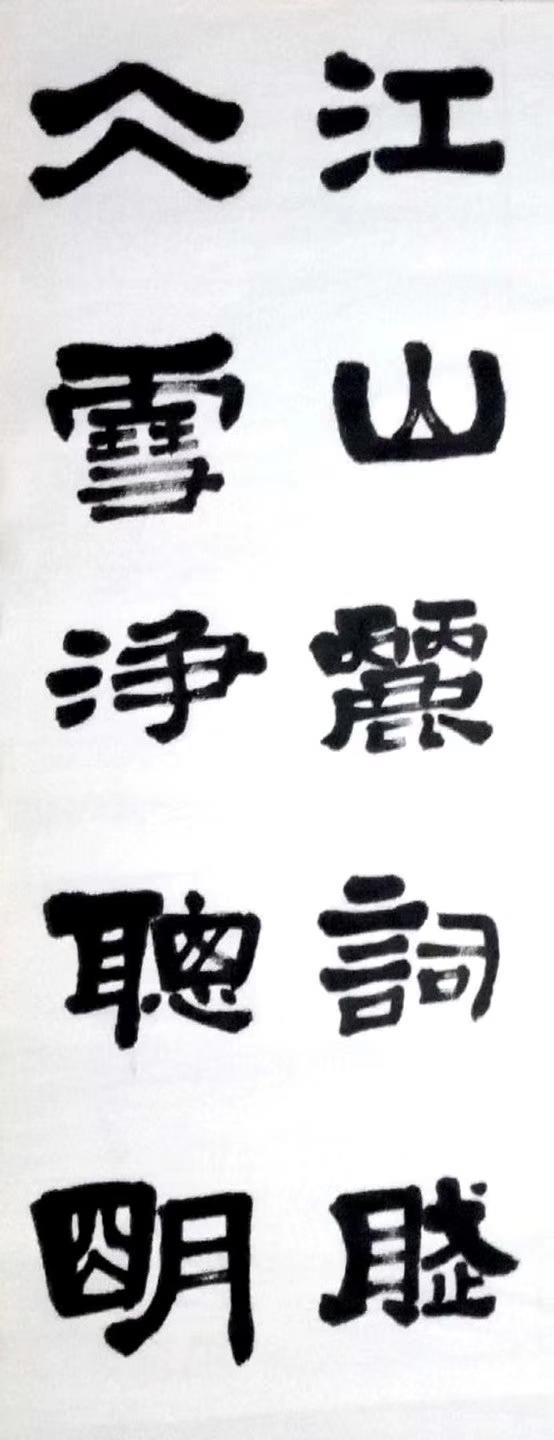 江山麗詞賦
仌雪淨聰朙